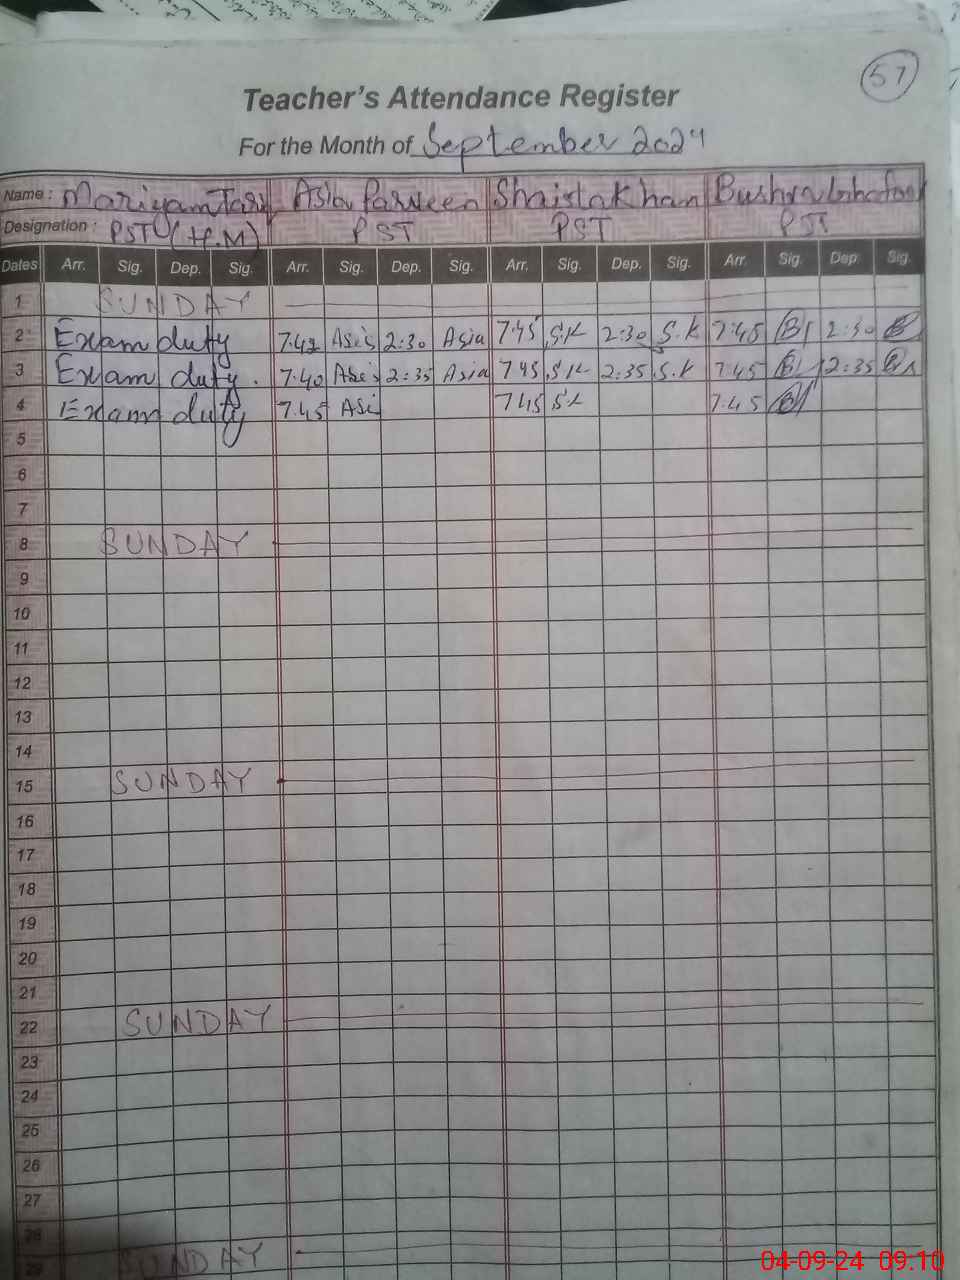 57
Teacher's Attendance Register
For the Month of September 2024
Name: Mariyam Asia Parveen Shaista Khan Bushra
Designation: PST (H.M) PST PST PST
Dates Arr. Sig. Dep. Sig. Arr. Sig. Dep. Sig. Arr. Sig. Dep. Sig. Arr. Sig. Dep Sig.
1 SUNDAY
2 Exam duty 7:42 Asia 2:30 Asia 7:45 S.K 2:30 S.K 7:45 B 2:30 B
3 Exam duty. 7:40 Asia 2:35 Asia 7:45 S.K 2:35 S.K 7:45 B 2:35
4 Exam duty 7:45 Asi 7:45 S.K 7:45 B
5
6
7
8 SUNDAY
9
10
11
12
13
14
15 SUNDAY
16
17
18
19
20
21
22 SUNDAY
23
24
25
26
27
28
29 SUNDAY
04-09-24 09:10